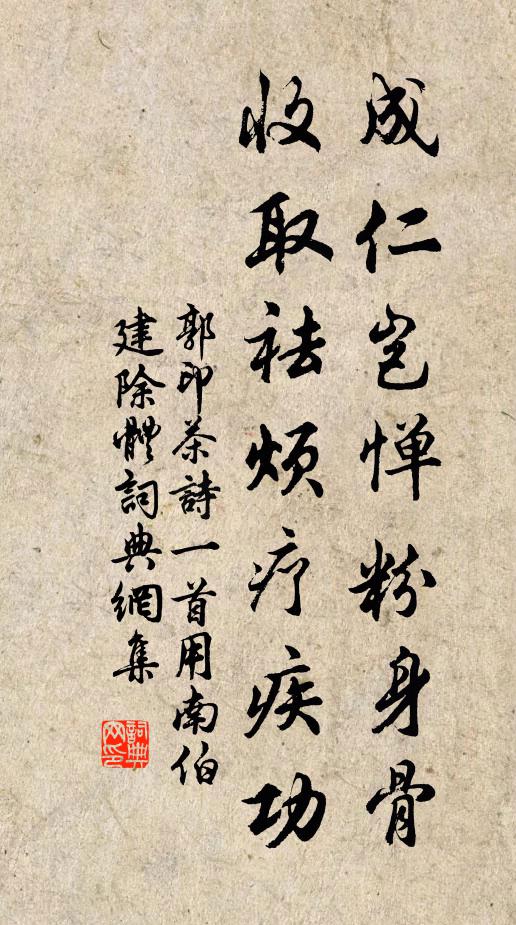 成仁岂惮粉身骨
收取祛烦疗疾功
郭印茶詩一首用南伯
建除體詞典網集
詞典網印